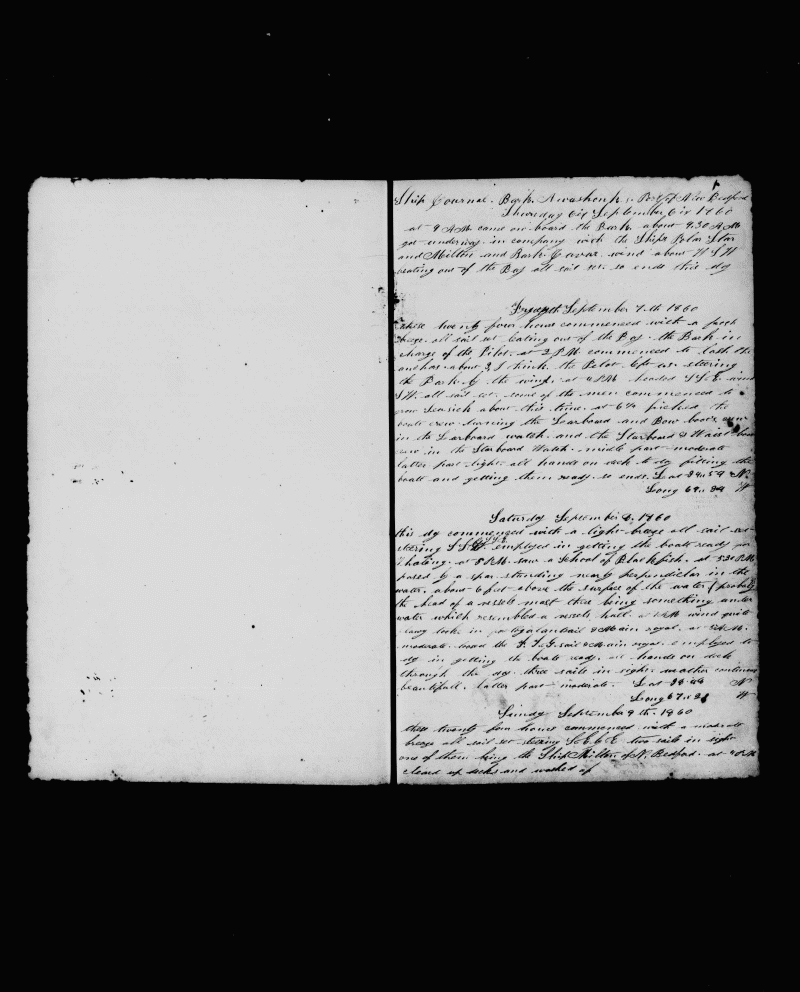 1
Ship Journal. Bark Awashonks. Port of New Bedford
Thursday 6th September 6th 1860
at 9 AM came on board the Bark. about 9.30 AM
got underway. in company with the Ships Polar Star
and Milton and Bark wind about W S W
beating out of the Bay all sail set. so ends this dy
September 7th 1860
these twenty four hours commenced with a fresh
breeze. all sail set beating out of the Bay. the Bark in
charge of the Pilot. at 2 PM commenced to lash the
anchors. about 3 I think, the Pilot left us. steering
the Bark by the wind. at 4 PM headed S S E wind
S W. all sail set. some of the men commenced to
grow seasick about this time. at 6 picked the
boats crew. having the Larboard and Bow boats crew
in the Larboard watch. and the Starboard & Waist boats
crew in the Starboard Watch. middle part moderate
latter part light. all hands on deck to dy fitting the
boats and getting them ready. so ends. Lat 39.. 59 N.
Long 69.. W
Saturday September 8, 1860
this dy commenced with a light breeze all sail set
steering employed in getting the boats ready for
whaling. at 5 P.M. saw a school of Blackfish. at 5.30 P.M.
passed by a spar standing nearly perpendiclar in the
water. about 6 feet above the surface of the water (probaly
the head of a vessels mast there being something under
water which resembled a vessels hull. at PM wind quite
strong took in Main royal. at A.M.
moderate. loosed the F. T. G. sail & Main royal. employed to
dy in getting the boats ready. all hands on deck
through the dy. three sails in sight. weather continues
beautifull. latter part moderate. Lat 38.. 44 N
Long 67.. W
Sundy September 9th. 1860
these twenty four hours commenced with a moderate
breeze all sail set steering two sails in sight
one of them being the Ship Milton of N. Bedford. at 4 P.M.
cleard up decks and washed of